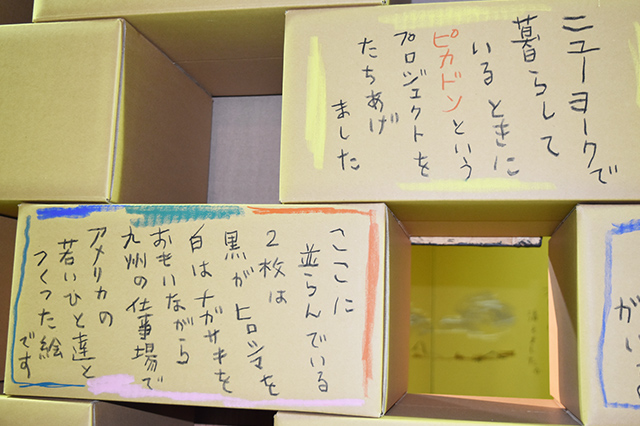 ニューヨークで
暮らして
いるときに
ピカドンという
プロジェクトを
たちあげ
ました
ここに
並らんでいる
2枚は
黒がヒロシマを
白はナガサキを
おもいながら
九州の仕事場で
アメリカの
若いひと達と
つくった絵
です
がい